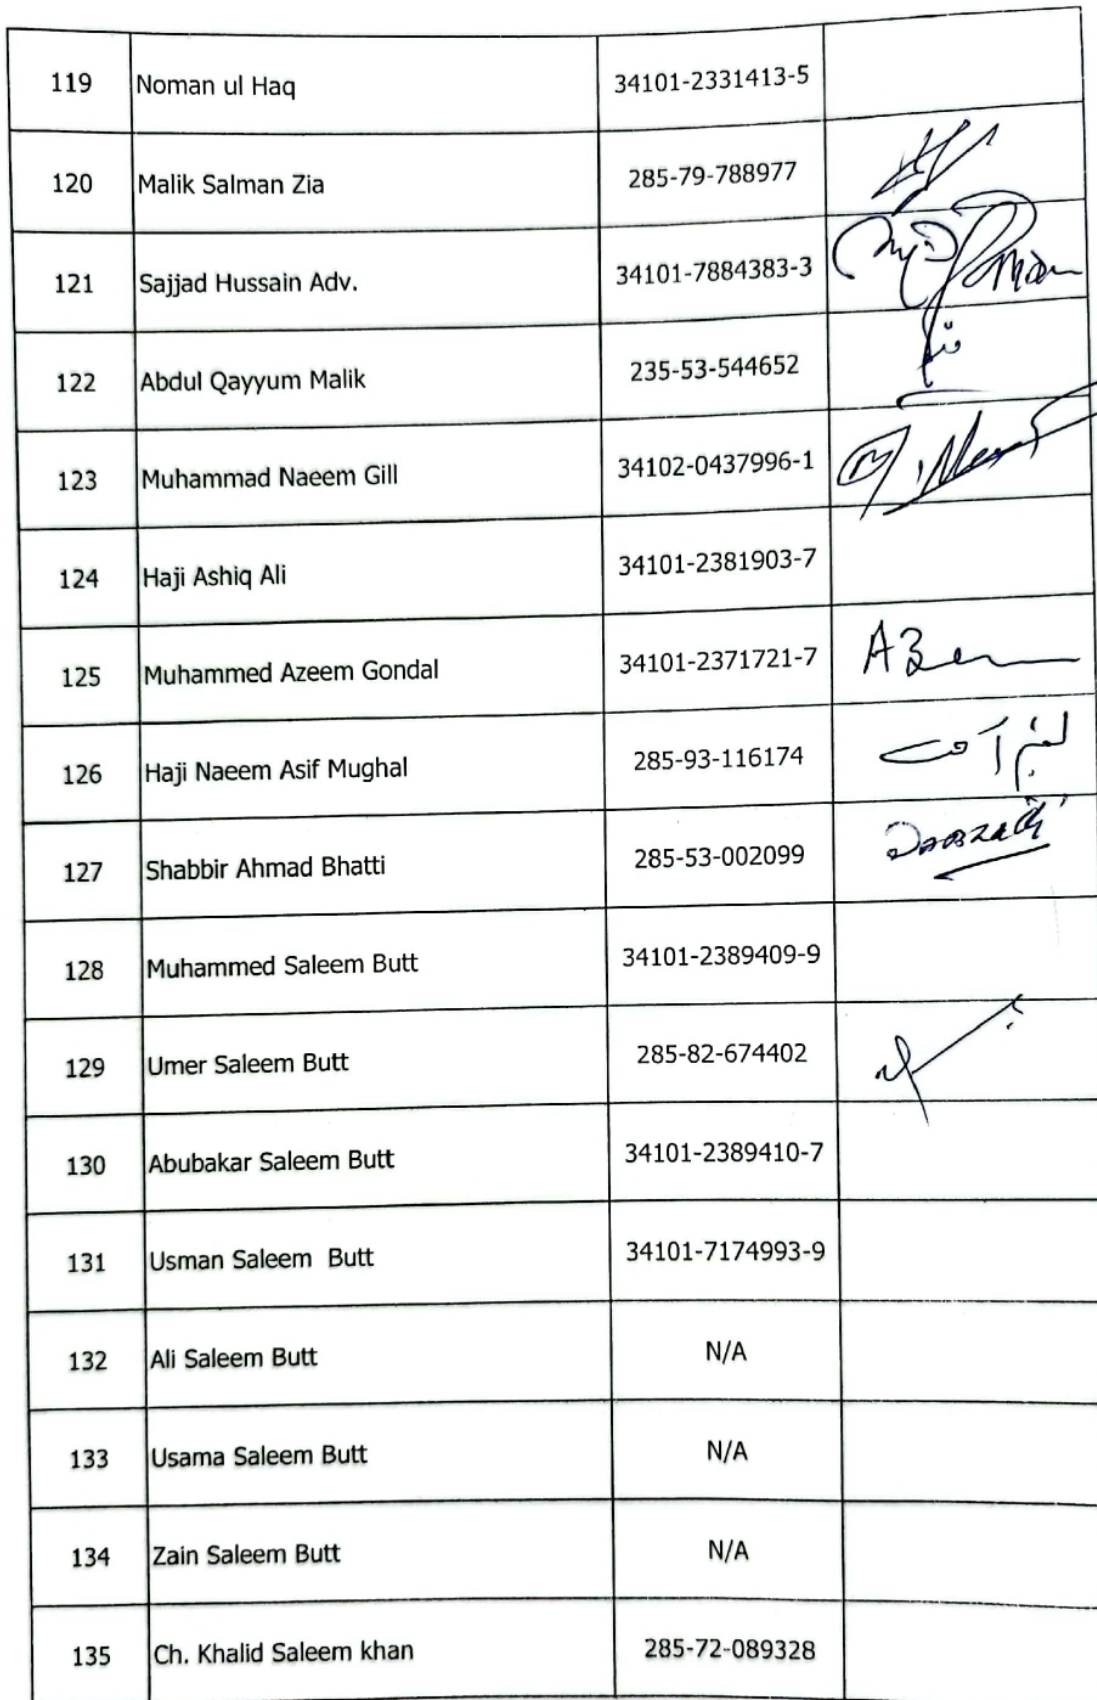 119 Noman ul Haq 34101-2331413-5
120 Malik Salman Zia 285-79-788977
121 Sajjad Hussain Adv. 34101-7884383-3
122 Abdul Qayyum Malik 235-53-544652
123 Muhammad Naeem Gill 34102-0437996-1
124 Haji Ashiq Ali 34101-2381903-7
125 Muhammed Azeem Gondal 34101-2371721-7
126 Haji Naeem Asif Mughal 285-93-116174
127 Shabbir Ahmad Bhatti 285-53-002099
128 Muhammed Saleem Butt 34101-2389409-9
129 Umer Saleem Butt 285-82-674402
130 Abubakar Saleem Butt 34101-2389410-7
131 Usman Saleem  Butt 34101-7174993-9
132 Ali Saleem Butt N/A
133 Usama Saleem Butt N/A
134 Zain Saleem Butt N/A
135 Ch. Khalid Saleem khan 285-72-089328